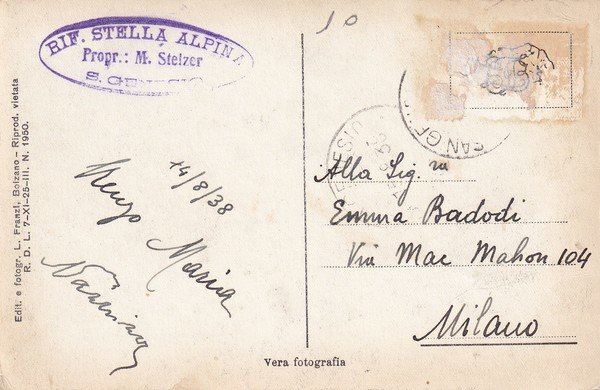 10
RIF. STELLA ALPINA
Propr.: M. Stelzer
S. GENESIO
Edit. e fotogr. L. Franzl, Bolzano - Riprod. vietata
R. D. L. 7-XI-25-III. N. 1950.
14/8/38
Renzo Maria
Alla Sig.ra
Emma Badodi
Via Mac Mahon 104
Milano
Vera fotografia